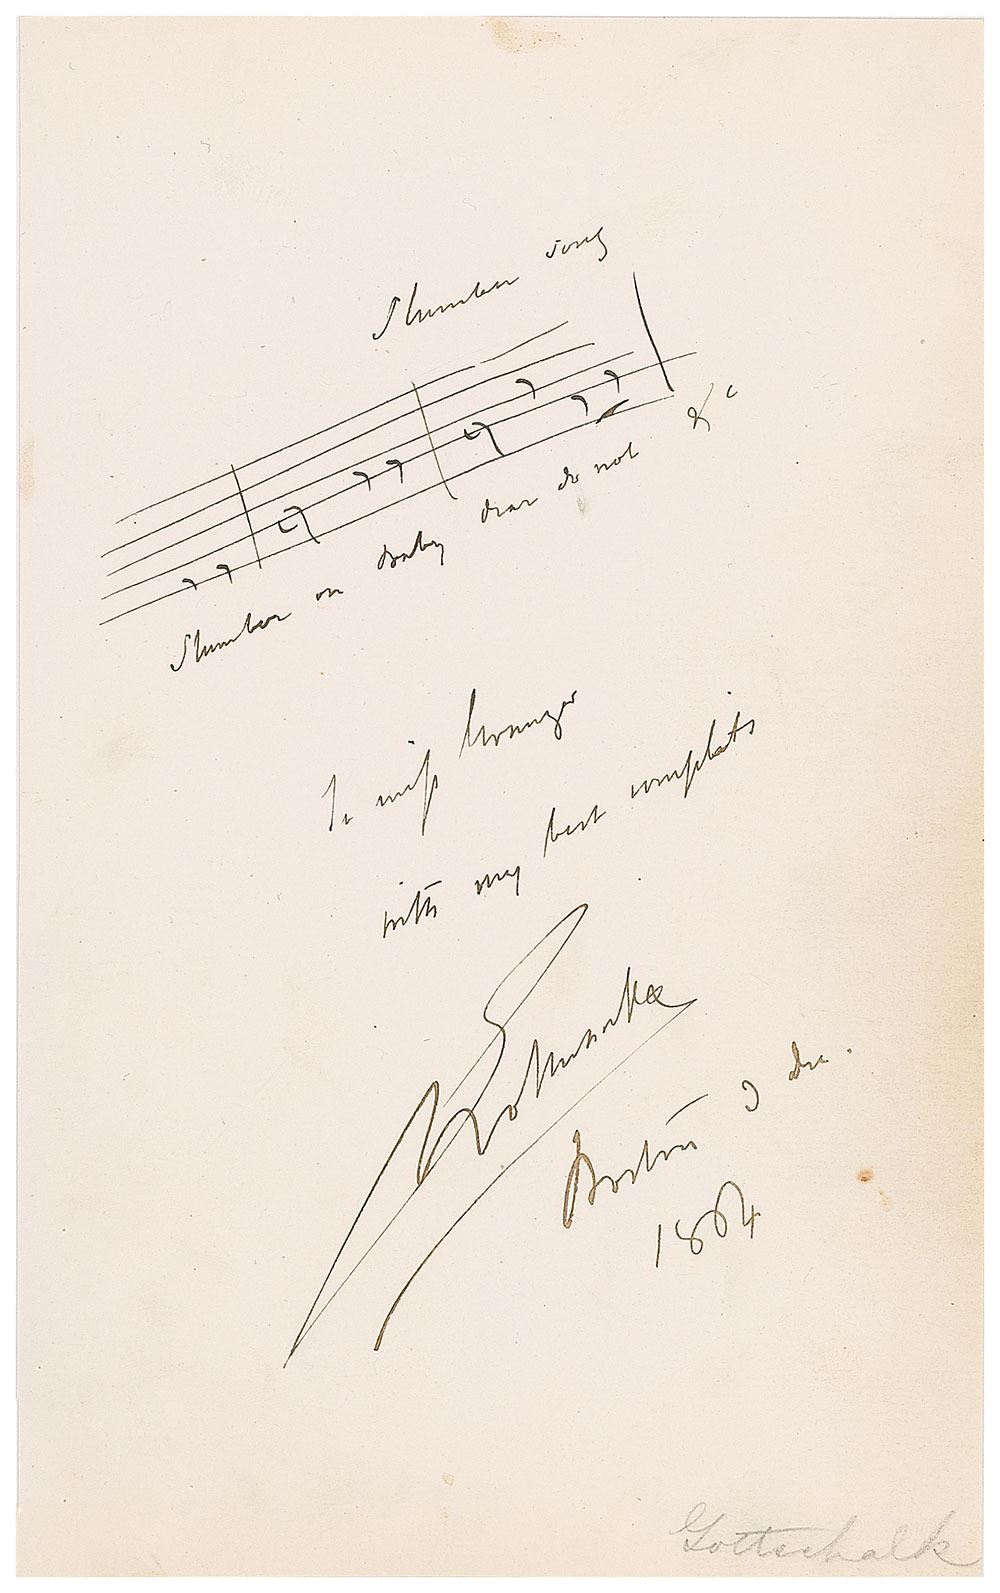 Slumber song
Slumber on baby dear do not &c
To miss
with my best complts
Gottschalk
Boston 3 Dec.
1864
Gottschalk